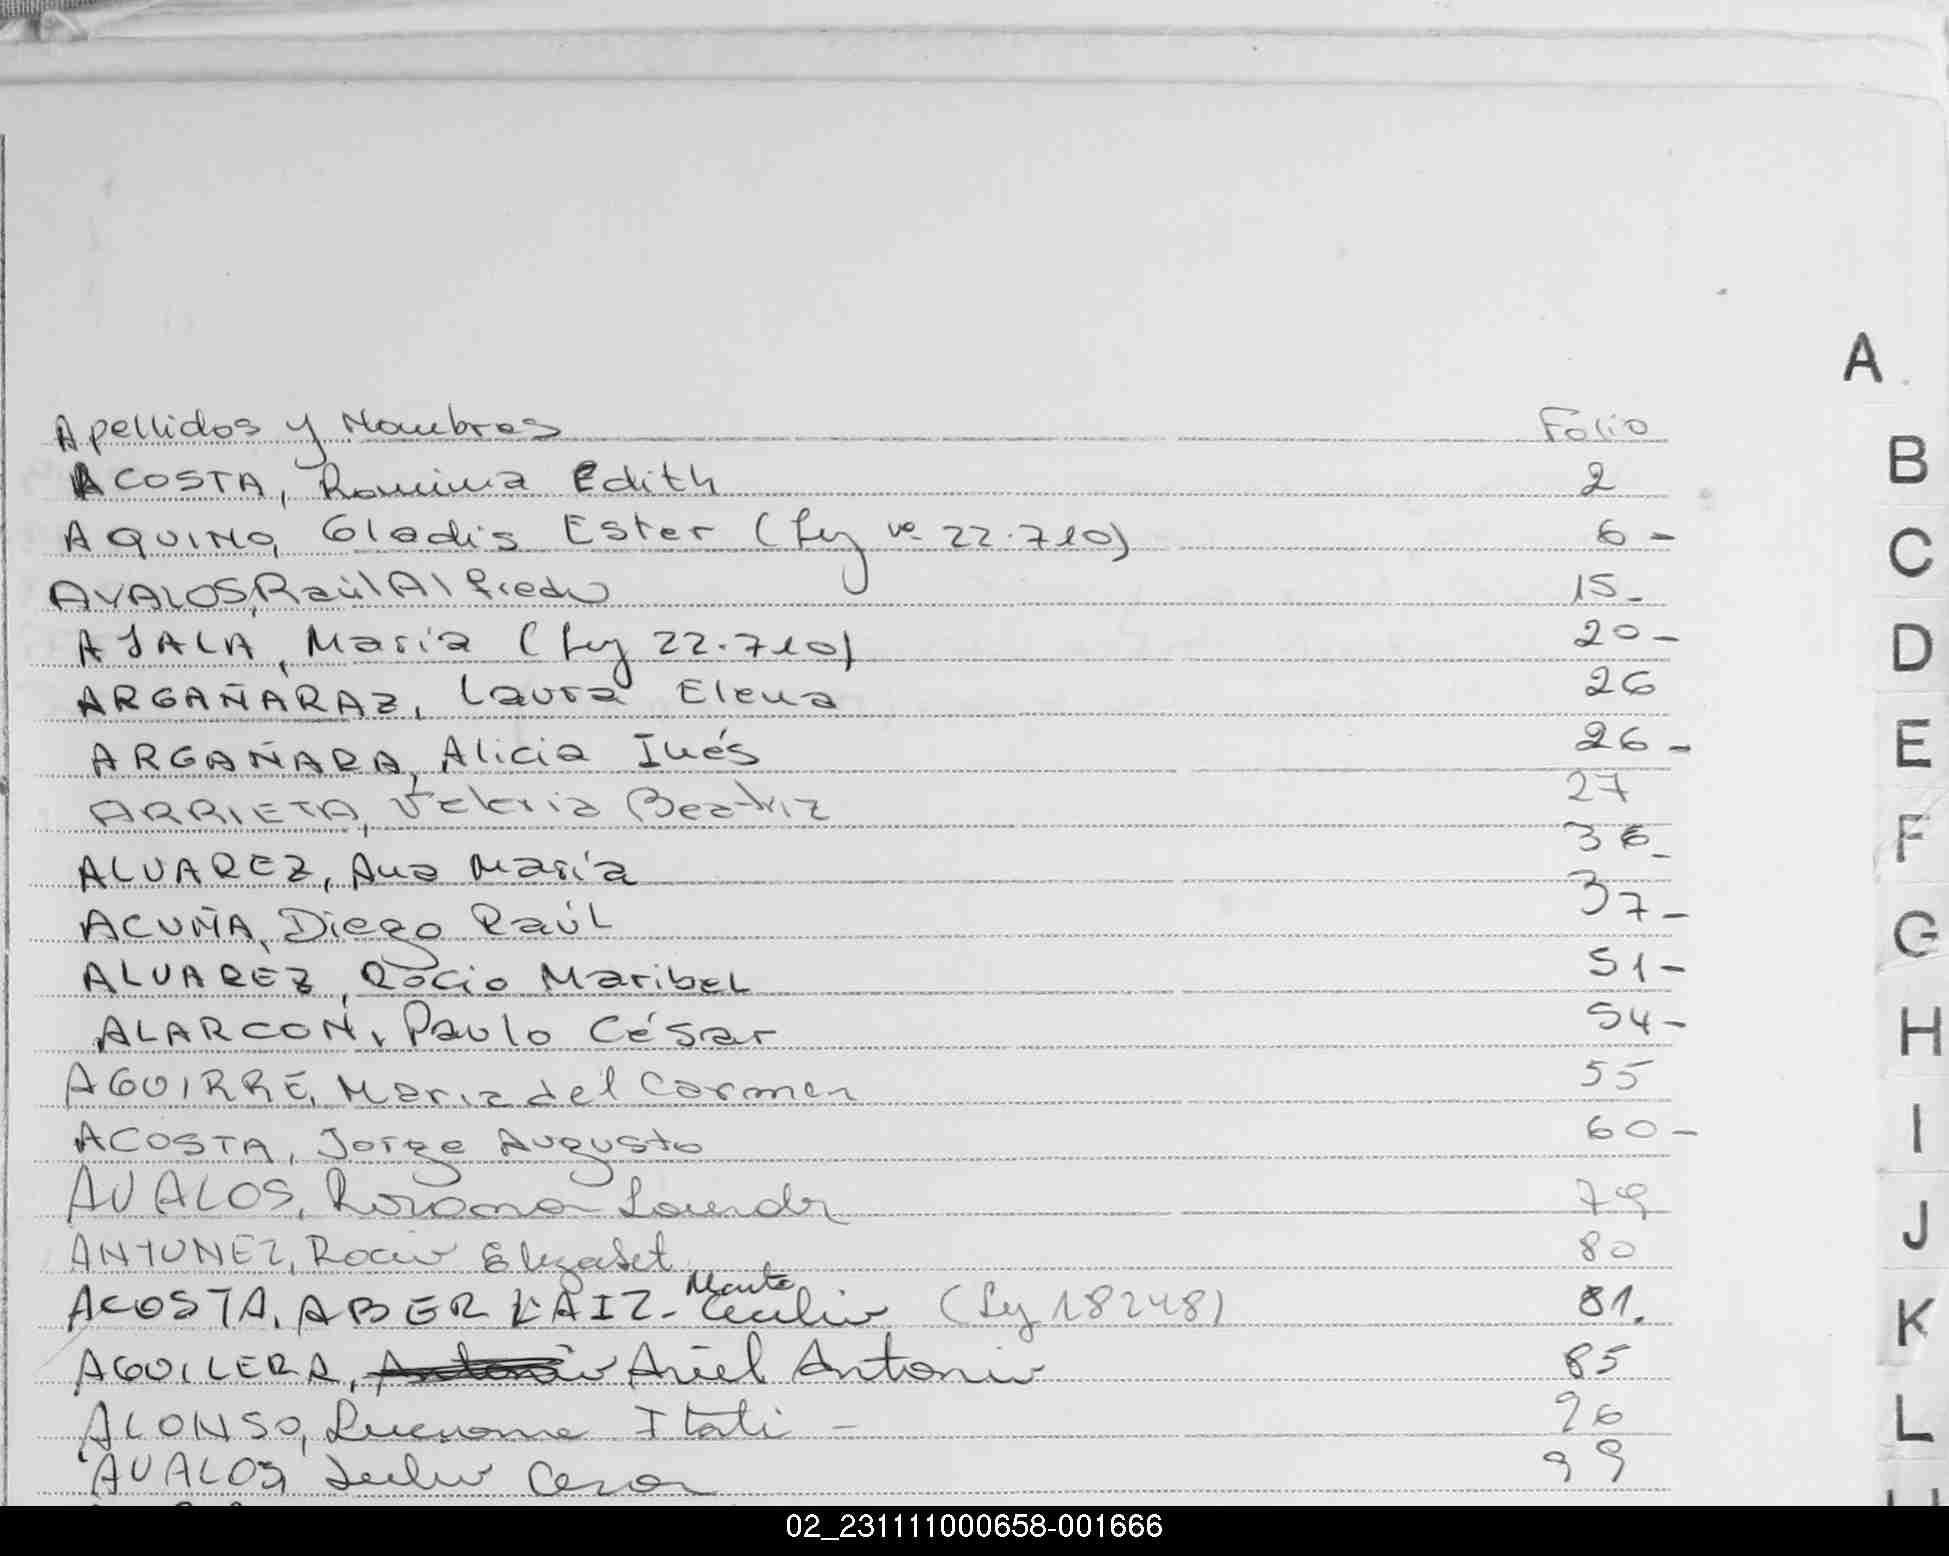 A
B
C
D
E
F
G
H
I
J
K
L
Apellidos y Nombres Folio
ACOSTA, Romina Edith 2
AQUINO, Gladis Ester (Ley nº 22.710) 6 -
AVALOS, Raúl Alfredo 15 -
AYALA, María (Ley 22.710) 20 -
ARGAÑARAZ, Laura Elena 26
ARGAÑARA, Alicia Inés 26 -
ARRIETA, Valeria Beatriz 27
ALVAREZ, Ana María 36 -
ACUÑA, Diego Raúl 37 -
ALVAREZ, Rocío Maribel 51 -
ALARCON, Paulo César 54 -
AGUIRRE, Maria del Carmen 55
ACOSTA, Jorge Augusto 60 -
AVALOS, Rosana 79
ANTUNEZ, Rocio Elizabet 80
Marta
ACOSTA, ABERKAIZ - Cecilia (Ley 18248) 81.
AGUILERA, Ariel Antonio 85
ALONSO, Itati - 96
AVALOS, Julio Cesar 99
02_231111000658-001666